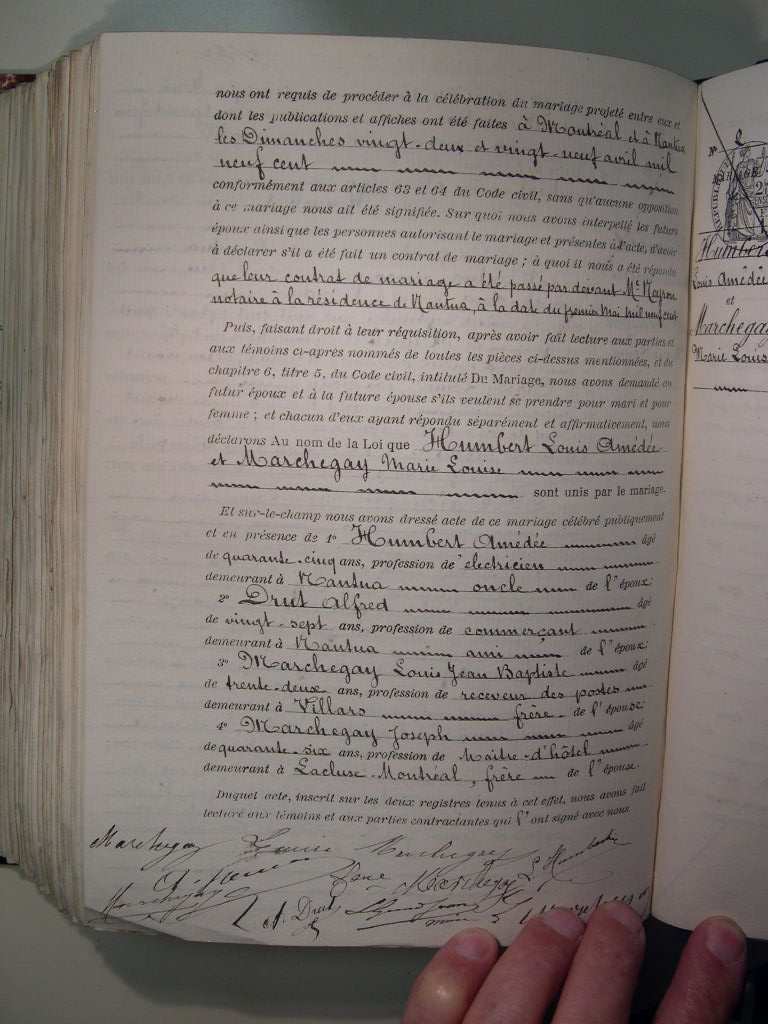 nous ont requis de procéder à la célébration du mariage projeté entre eux et
dont les publications et affiches ont été faites à Montréal et à Nantua
les Dimanches vingt-deux et vingt-neuf avril mil
neuf cent
conformément aux articles 63 et 64 du Code civil, sans qu'aucune opposition
à ce mariage nous ait été signifiée. Sur quoi nous avons interpellé les futurs
époux ainsi que les personnes autorisant le mariage et présentes à l'acte, d'avoir
à déclarer s'il a été fait un contrat de mariage ; à quoi il nous a été répondu
que leur contrat de mariage a été passé par devant Me
notaire à la résidence de Nantua, à la date du premier Mai mil neuf cent
Puis, faisant droit à leur réquisition, après avoir fait lecture aux parties et
aux témoins ci-après nommés de toutes les pièces ci-dessus mentionnées, et du
chapitre 6, titre 5, du Code civil, intitulé Du Mariage, nous avons demandé au
futur époux et à la future épouse s'ils veulent se prendre pour mari et pour
femme ; et chacun d'eux ayant répondu séparément et affirmativement, nous
déclarons Au nom de la Loi que Humbert Louis Amédée
et Marchegay Marie Louise
sont unis par le mariage.
Et sur-le-champ nous avons dressé acte de ce mariage célébré publiquement
et en présence de 1° Humbert Amédée âgé
de quarante-cinq ans, profession de électricien
demeurant à Nantua oncle de l'époux;
2° Drut Alfred âgé
de vingt-sept ans, profession de commerçant
demeurant à Nantua ami de l'époux;
3° Marchegay Louis Jean Baptiste âgé
de trente-deux ans, profession de receveur des postes
demeurant à Villars frère de l'épouse;
4° Marchegay Joseph âgé
de quarante-six ans, profession de Maître-d'hôtel
demeurant à Lacluse-Montréal, frère de l'épouse.
Duquel acte, inscrit sur les deux registres tenus à cet effet, nous avons fait
lecture aux témoins et aux parties contractantes qui l'ont signé avec nous.
Marchegay Louise Marchegay
Marchegay L Humbert
Marchegay A. Drut
N° 2
Humbert
Louis Amédée
et
Marchegay
Marie Louise